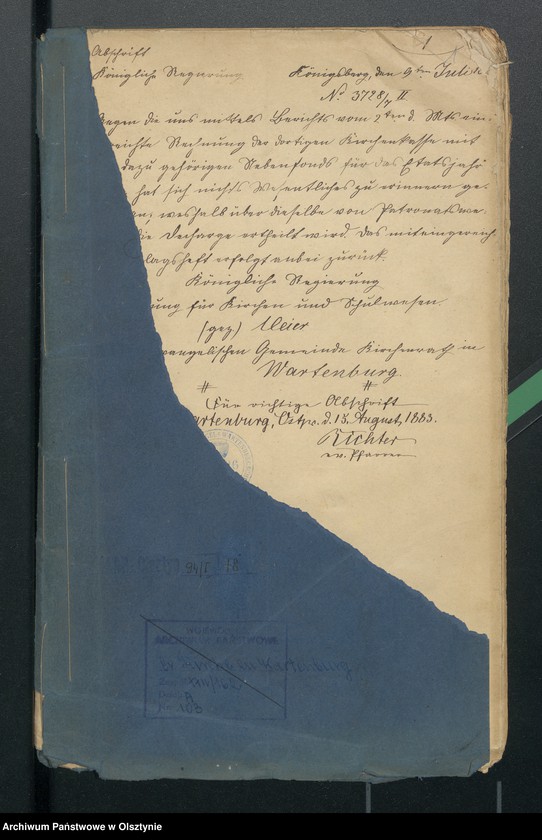 1
Abschrift
Königliche Regierung Königsberg, den 9ten Juli
No 3728/7 II
Gegen die uns mittels Berichts vom 2ten d. Mts ein
reichte Rechnung der dortigen Kirchenkasse mit
dazu gehörigen Nebenfonds für das Etatsjahr
hat sich nichts Wesentliches zu erinnern ge
en, weshalb über dieselbe von Patronatswe
die Decharge ertheilt wird. Das miteingereich
lagsheft erfolgt anbei zurück.
Königliche Regierung
ung für Kirchen und Schulwesen.
(gez) Meier
vangelischen Gemeinde Kirchenrath in
Wartenburg.
Für richtige Abschrift
artenburg, Ostpr. d. 15. August 1883.
Richter
ev. Pfarrer
I/46
ARCHIWUM PAŃSTWOWE
A
103
Archiwum Państwowe w Olsztynie